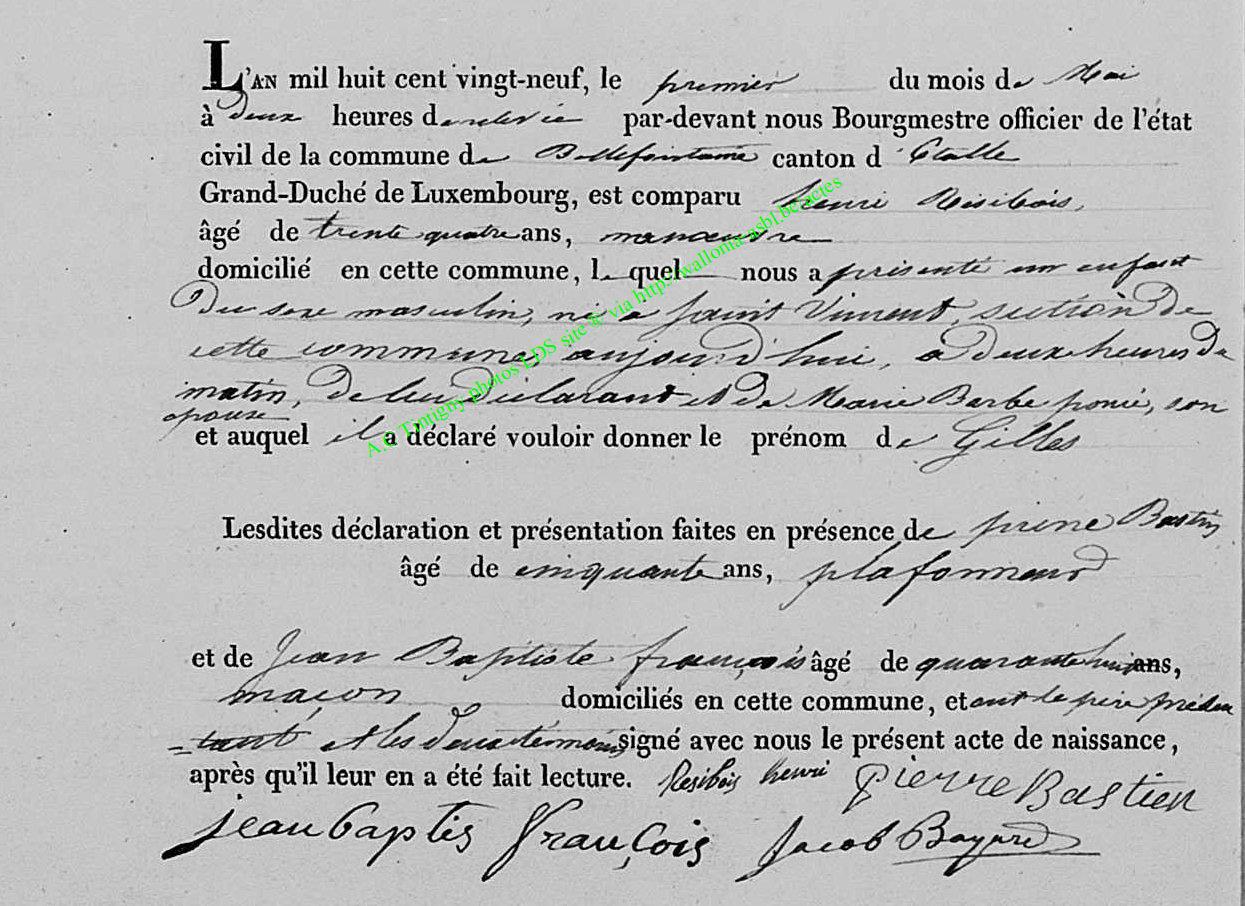 L'AN mil huit cent vingt-neuf, le premier du mois de Mai
à deux heures de relevée par-devant nous Bourgmestre officier de l'état
civil de la commune de Bellefontaine canton d'Etalle
Grand-Duché de Luxembourg, est comparu henri Résibois,
âgé de trente quatre ans, manœuvre
domicilié en cette commune, lequel nous a présenté un enfant
du sexe masculin, né à saint Vincent, section de
cette commune, aujourd'hui, à deux heures du
matin, de lui déclarant et de Marie Barbe ponié, son
épouse
et auquel il a déclaré vouloir donner le prénom de Gilles
Lesdites déclaration et présentation faites en présence de pierre Bastin
âgé de cinquante ans, plafonneur
et de Jean Baptiste françois âgé de quarante huit ans,
maçon domiciliés en cette commune, et ont le père
et les deux témoins signé avec nous le présent acte de naissance,
après qu'il leur en a été fait lecture. Resibois henri Pierre Bastien
jean baptis françois Jacob Bayard
A.C Tintigny photos LDS site & via http://wallonia-asbl.be/actes